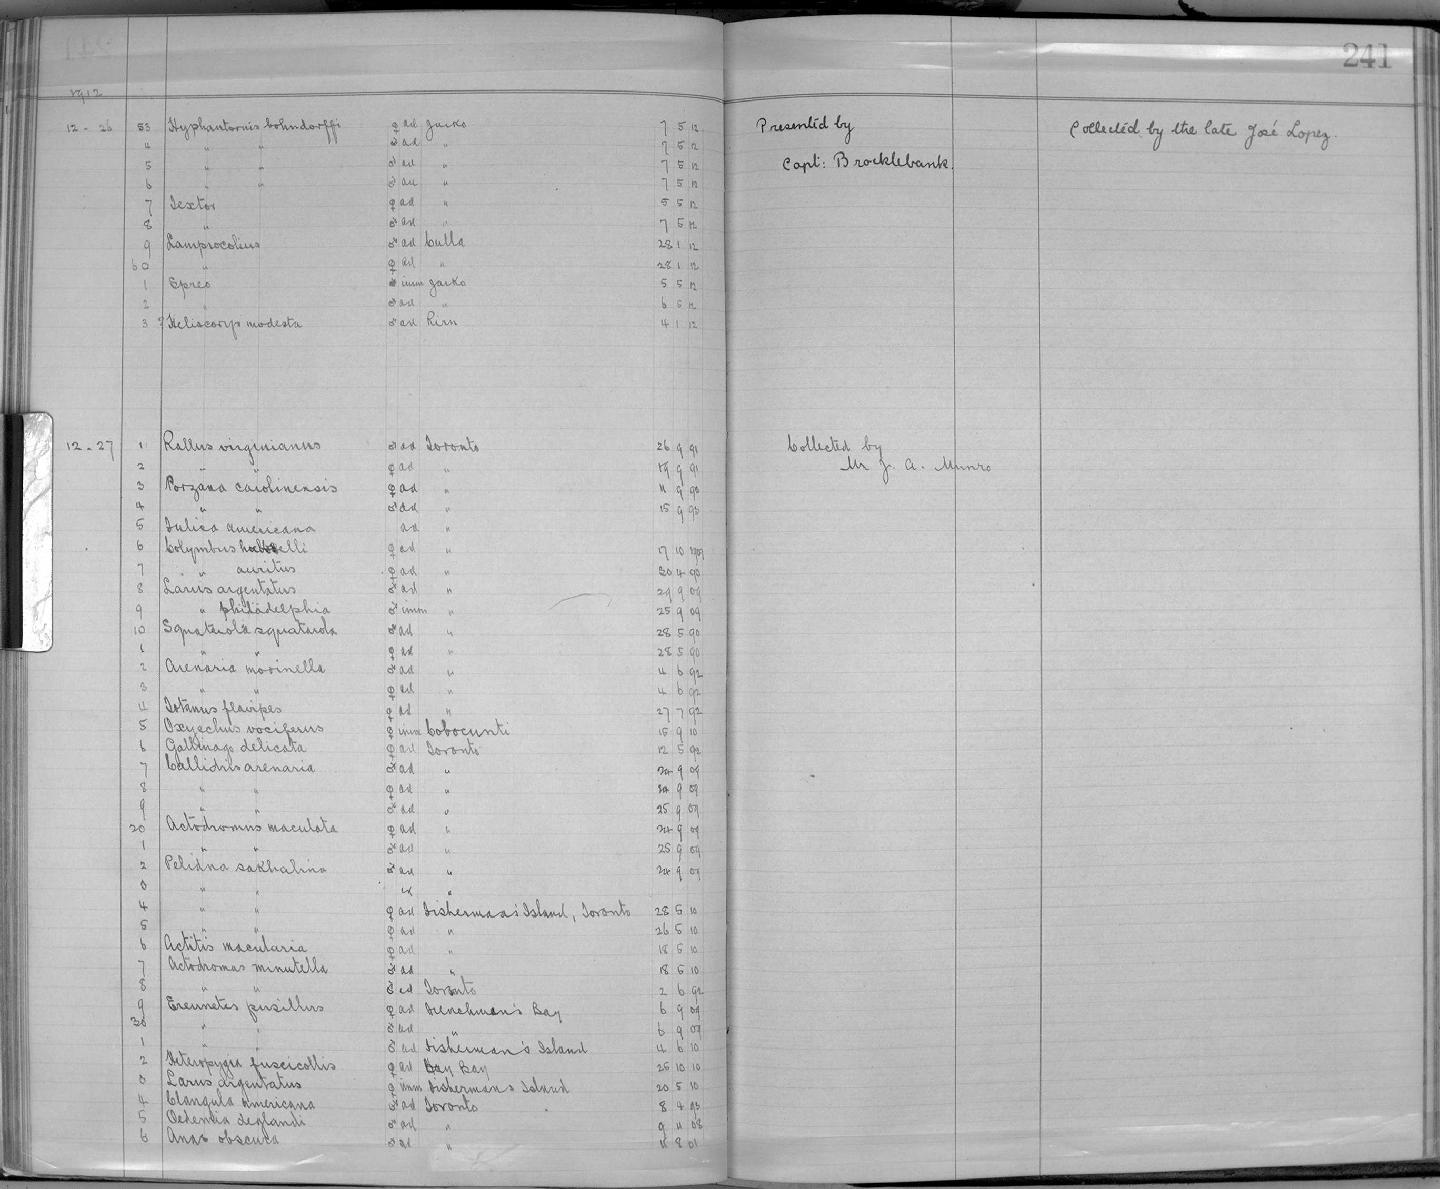 241
1912
12 - 26 53 Hyphantornis bohndorffi ♀ ad Gaiko 7 5 12 Presented by Collected by the late José Lopez.
4 " " ♂ ad " 7 5 12
5 " " ♂ ad " 7 5 12 Capt: Brocklebank.
6 " " ♂ ad " 7 5 12
7 Textor ♀ ad " 5 5 12
8 " ♂ ad " 7 5 12
9 Lamprocolius ♂ ad 28 1 12
60 " ♀ ad " 28 1 12
1 Spreo imm Gaiko 5 5 12
2 " ♂ ad " 6 5 12
3 ? Heliscorys modesta ♂ ad 4 1 12
12 - 27 1 Rallus virginianus ♂ ad Toronto 26 9 91 Collected by
2 " " ♀ ad " 19 9 91 Mr J. A. Munro
3 Porzana carolinensis ♀ ad " 11 9 90
4 " " ♂ ad " 15 9 90
5 Fulica americana ad "
6 Colymbus holboelli ♀ ad " 17 10
7 " auritus ♀ ad " 30 4 90
8 Larus argentatus ♂ ad " 29 9 09
9 " philadelphia ♂ imm " 25 9 09
10 Squatarola squatarola ♂ ad " 28 5 90
1 " " ♀ ad " 28 5 90
2 Arenaria morinella ♂ ad " 4 6 92
3 " " ♀ ad " 4 6 92
4 Totanus flavipes ♀ ad " 27 7 92
5 Oxyechus vociferus ♀ imm Cobocunti 15 9 10
6 Gallinago delicata ♀ ad Toronto 12 5 92
7 Callidris arenaria ♂ ad " 24 9 09
8 " " ♀ ad " 24 9 09
9 " " ♂ ad " 25 9 09
20 Actodromus maculata ♀ ad " 24 9 09
1 " " ♂ ad " 25 9 09
2 Pelidna sakhalina ♂ ad " 24 9 09
3 " " "
4 " " ♀ ad Fisherman's Island, Toronto 28 5 10
5 " " ♀ ad " 26 5 10
6 Actitis macularia ♀ ad " 18 5 10
7 Actodromas minutella ♂ ad " 18 5 10
8 " " ♂ ad Toronto 2 6 92
9 Ereunetes pusillus ♀ ad Frenchman's Bay 6 9 09
30 " " ♂ ad " 6 9 09
1 " " ♂ ad Fisherman's Island 4 6 10
2 Heteropygia fuscicollis ♀ ad Bay 25 10 10
3 Larus argentatus ♀ imm Fisherman's Island 20 5 10
4 Clangula americana ♂ ad Toronto 8 4 93
5 Oedemia deglandi ♂ ad " 9 11 08
6 Anas obscura ♂ ad " 11 8 01